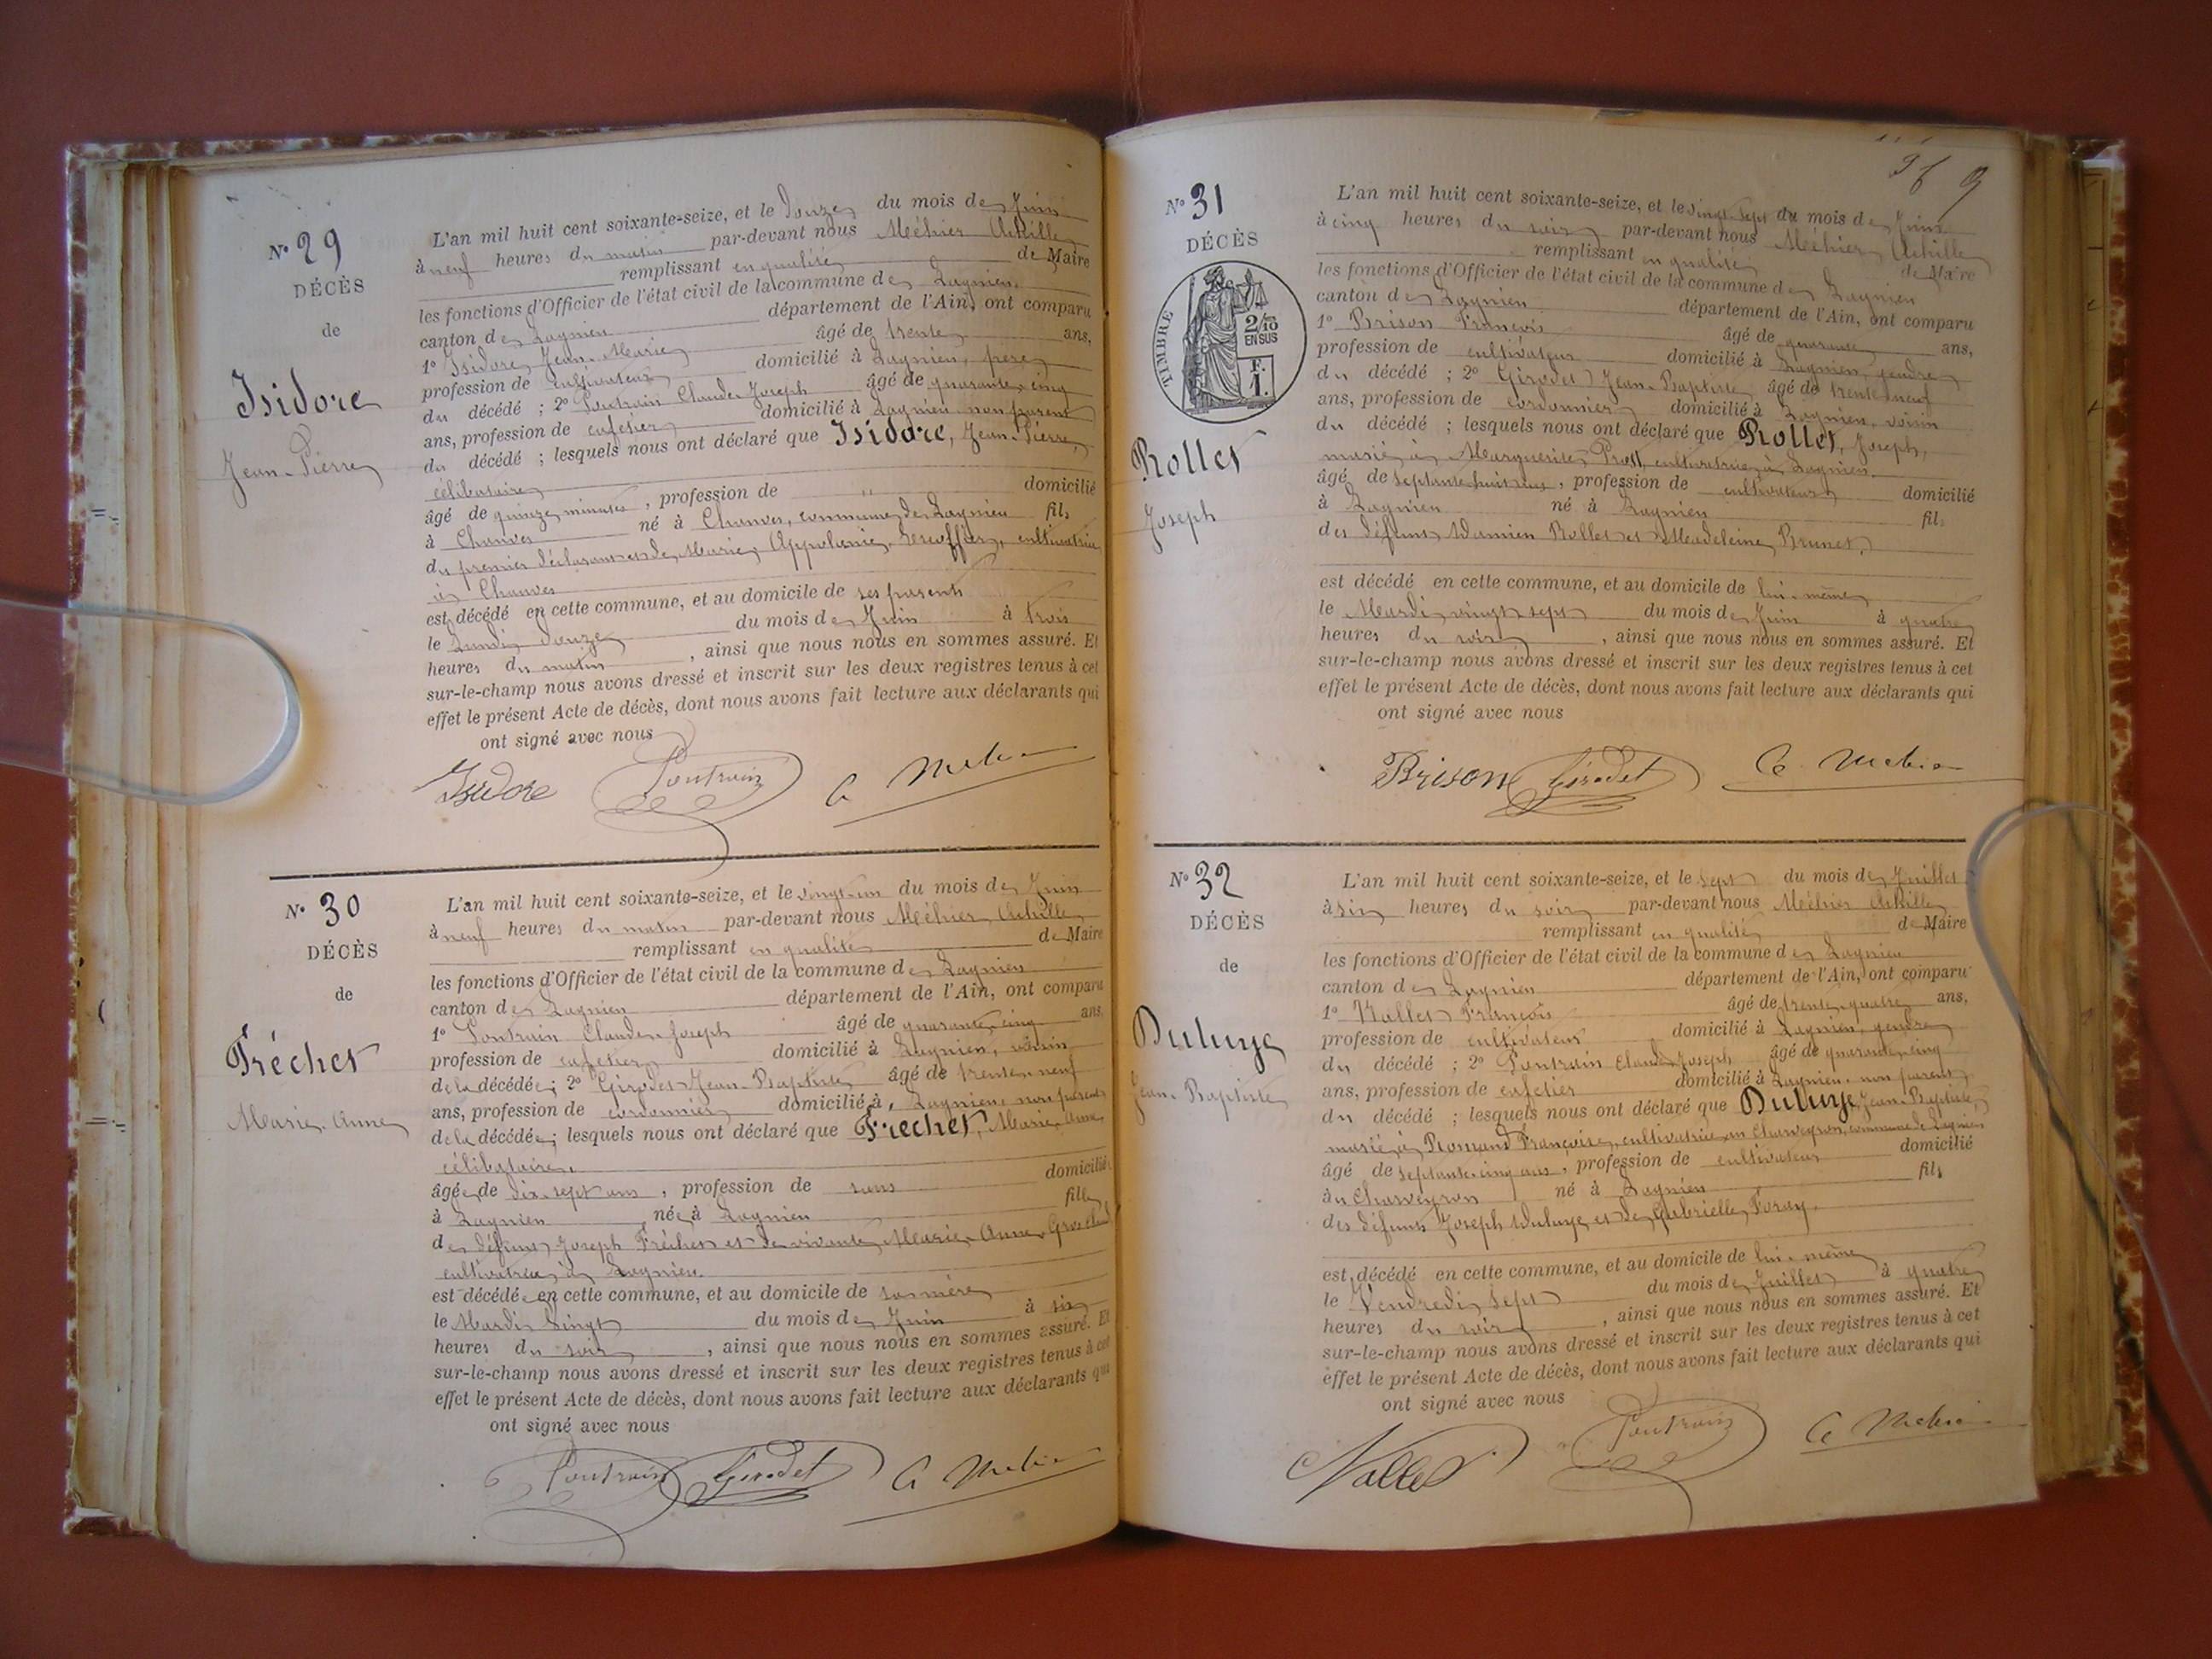 N° 29
DÉCÈS
de
Isidore
Jean-Pierre
L'an mil huit cent soixante-seize, et le douze du mois de Juin
à neuf heures du matin par-devant nous Méhier Achille
remplissant en qualité de Maire
les fonctions d'Officier de l'état civil de la commune de Lagnieu
canton de Lagnieu département de l'Ain, ont comparu
1° Isidore Jean-Marie âgé de trente ans,
profession de cultivateur domicilié à Lagnieu, père
du décédé ; 2° Poutrain Claude Joseph âgé de quarante cinq
ans, profession de cafetier domicilié à Lagnieu non parent
du décédé ; lesquels nous ont déclaré que Isidore, Jean-Pierre,
célibataire
âgé de quinze minutes, profession de " domicilié
à Chanves né à Chanves, commune de Lagnieu fils
du premier déclarant et de Marie Appolonie, cultivatrice
à Chanves
est décédé en cette commune, et au domicile de ses parents
le Lundi douze du mois de Juin à trois
heures du matin, ainsi que nous nous en sommes assuré. Et
sur-le-champ nous avons dressé et inscrit sur les deux registres tenus à cet
effet le présent Acte de décès, dont nous avons fait lecture aux déclarants qui
ont signé avec nous
Isidore Poutrain A Mehier
N° 30
DÉCÈS
de
Fréchet
Marie-Anne
L'an mil huit cent soixante-seize, et le vingt-un du mois de Juin
à neuf heures du matin par-devant nous Méhier Achille
remplissant en qualité de Maire
les fonctions d'Officier de l'état civil de la commune de Lagnieu
canton de Lagnieu département de l'Ain, ont comparu
1° Poutrain Claude Joseph âgé de quarante cinq ans,
profession de cafetier domicilié à Lagnieu, voisin
de la décédée ; 2° Girodet Jean-Baptiste âgé de trente-neuf
ans, profession de cordonnier domicilié à Lagnieu, non parent
de la décédée ; lesquels nous ont déclaré que Fréchet, Marie Anne
célibataire,
âgée de dix-sept ans, profession de sans domiciliée
à Lagnieu née à Lagnieu fille
de défunt Joseph Fréchet et de vivante Marie-Anne
cultivatrice à Lagnieu.
est décédée en cette commune, et au domicile de sa mère
le Mardi vingt du mois de Juin à six
heures du soir, ainsi que nous nous en sommes assuré. Et
sur-le-champ nous avons dressé et inscrit sur les deux registres tenus à cet
effet le présent Acte de décès, dont nous avons fait lecture aux déclarants qui
ont signé avec nous
Poutrain Girodet A Mehier
N° 31
DÉCÈS
TIMBRE
2/10
EN SUS
F.
1.
Rollet
Joseph
L'an mil huit cent soixante-seize, et le vingt-sept du mois de Juin
à cinq heures du soir par-devant nous Méhier Achille
remplissant en qualité de Maire
les fonctions d'Officier de l'état civil de la commune de Lagnieu
canton de Lagnieu département de l'Ain, ont comparu
1° Brison François âgé de quarante ans,
profession de cultivateur domicilié à Lagnieu, gendre
du décédé ; 2° Girodet Jean-Baptiste âgé de trente-neuf
ans, profession de cordonnier domicilié à Lagnieu, voisin
du décédé ; lesquels nous ont déclaré que Rollet, Joseph,
marié à Marguerite Prost, cultivatrice à Lagnieu.
âgé de septante-huit ans, profession de cultivateur domicilié
à Lagnieu né à Lagnieu fils
des défunts Damien Rollet et Madeleine Brunet,
est décédé en cette commune, et au domicile de lui-même
le Mardi vingt sept du mois de Juin à quatre
heures du soir, ainsi que nous nous en sommes assuré. Et
sur-le-champ nous avons dressé et inscrit sur les deux registres tenus à cet
effet le présent Acte de décès, dont nous avons fait lecture aux déclarants qui
ont signé avec nous
Brison Girodet A Mehier
N° 32
DÉCÈS
de
Duluye
Jean-Baptiste
L'an mil huit cent soixante-seize, et le sept du mois de Juillet
à six heures du soir par-devant nous Méhier Achille
remplissant en qualité de Maire
les fonctions d'Officier de l'état civil de la commune de Lagnieu
canton de Lagnieu département de l'Ain, ont comparu
1° Nallet François âgé de trente-quatre ans,
profession de cultivateur domicilié à Lagnieu, gendre
du décédé ; 2° Poutrain Claude Joseph âgé de quarante cinq
ans, profession de cafetier domicilié à Lagnieu, non parent
du décédé ; lesquels nous ont déclaré que Duluye Jean-Baptiste,
marié à Romand Françoise, cultivatrice au Charveyron, commune de Lagnieu
âgé de septante-cinq ans, profession de cultivateur domicilié
au Charveyron né à Lagnieu fils
des défunts Joseph Duluye et de Gabrielle Foray.
est décédé en cette commune, et au domicile de lui-même
le Vendredi sept du mois de Juillet à quatre
heures du soir, ainsi que nous nous en sommes assuré. Et
sur-le-champ nous avons dressé et inscrit sur les deux registres tenus à cet
effet le présent Acte de décès, dont nous avons fait lecture aux déclarants qui
ont signé avec nous
Nallet Poutrain A Mehier